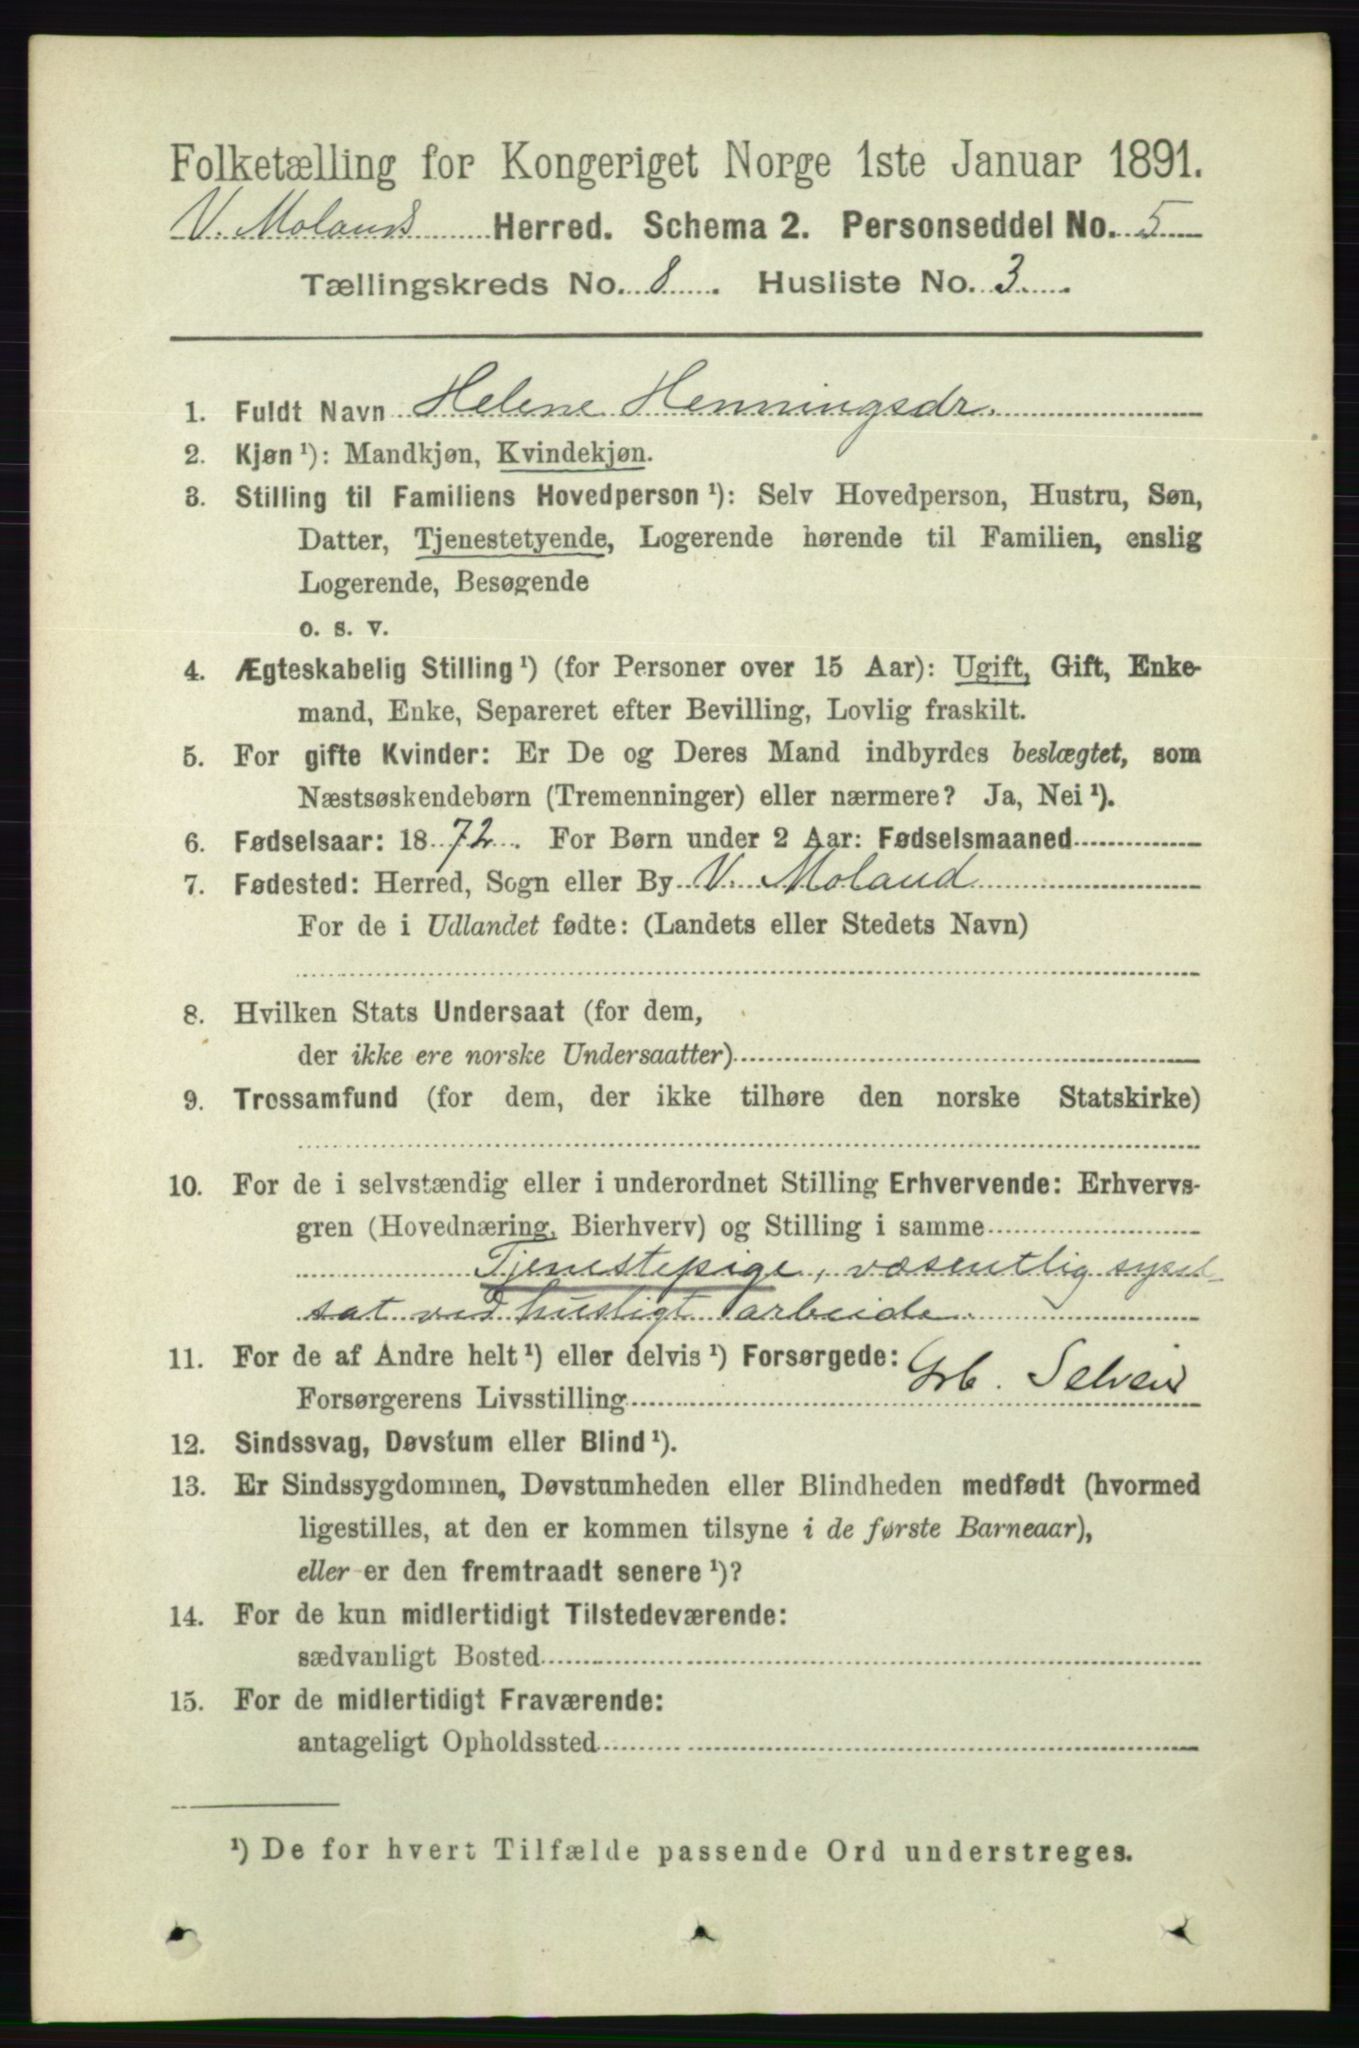 Folketælling for Kongeriget Norge 1ste Januar 1891.
V. Molands Herred. Schema 2. Personseddel No. 5
Tællingskreds No. 8. Husliste No. 3.
1. Fuldt Navn Helene Henningsdr.
2. Kjøn ¹): Mandkjøn, Kvindekjøn.
3. Stilling til Familiens Hovedperson ¹): Selv Hovedperson, Hustru, Søn,
Datter, Tjenestetyende, Logerende hørende til Familien, enslig
Logerende, Besøgende
o. s. v.
4. Ægteskabelig Stilling ¹) (for Personer over 15 Aar): Ugift, Gift, Enke-
mand, Enke, Separeret efter Bevilling, Lovlig fraskilt.
5. For gifte Kvinder: Er De og Deres Mand indbyrdes beslægtet, som
Næstsøskendebørn (Tremenninger) eller nærmere? Ja, Nei ¹).
6. Fødselsaar: 1872. For Børn under 2 Aar: Fødselsmaaned
7. Fødested: Herred, Sogn eller By V. Moland
For de i Udlandet fødte: (Landets eller Stedets Navn)
8. Hvilken Stats Undersaat (for dem,
der ikke ere norske Undersaatter)
9. Trossamfund (for dem, der ikke tilhøre den norske Statskirke)
10. For de i selvstændig eller i underordnet Stilling Erhvervende: Erhvervs-
gren (Hovednæring, Bierhverv) og Stilling i samme
Tjenestepige, væsentlig sysel-
sat ved husligt arbeide.
11. For de af Andre helt ¹) eller delvis ¹) Forsørgede:
Forsørgerens Livsstilling Grb. Selveier
12. Sindssvag, Døvstum eller Blind ¹).
13. Er Sindssygdommen, Døvstumheden eller Blindheden medfødt (hvormed
ligestilles, at den er kommen tilsyne i de første Barneaar),
eller er den fremtraadt senere ¹)?
14. For de kun midlertidigt Tilstedeværende:
sædvanligt Bosted
15. For de midlertidigt Fraværende:
antageligt Opholdssted
¹) De for hvert Tilfælde passende Ord understreges.